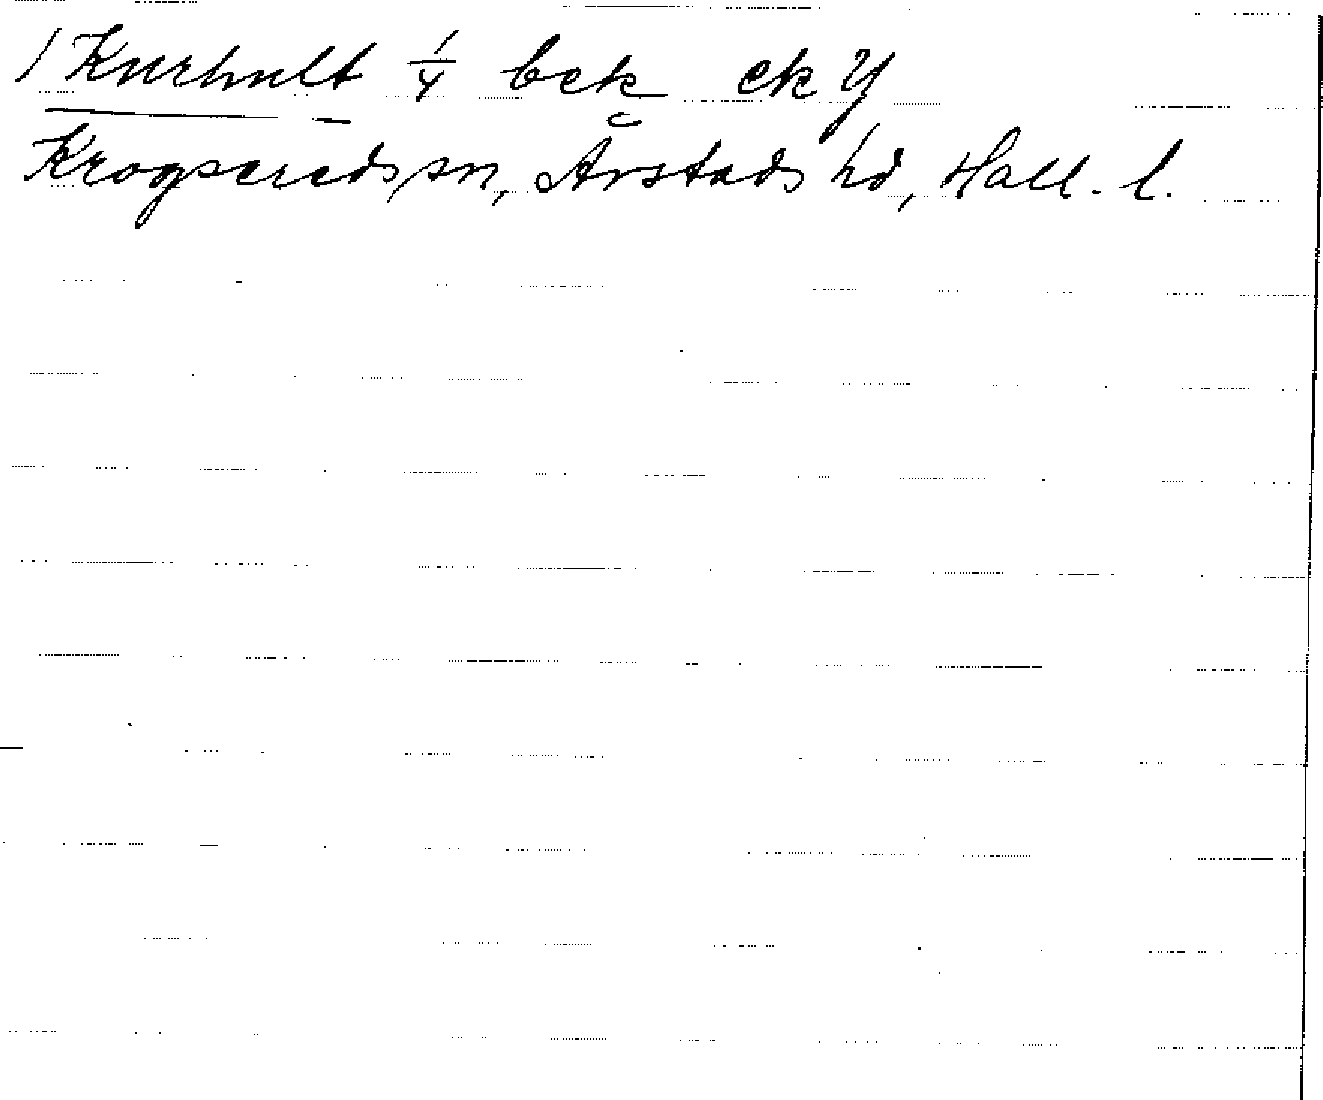 / Kurhult 1/4 bek ek Y
Krogsereds sn, Årstads hd, Hall. l.